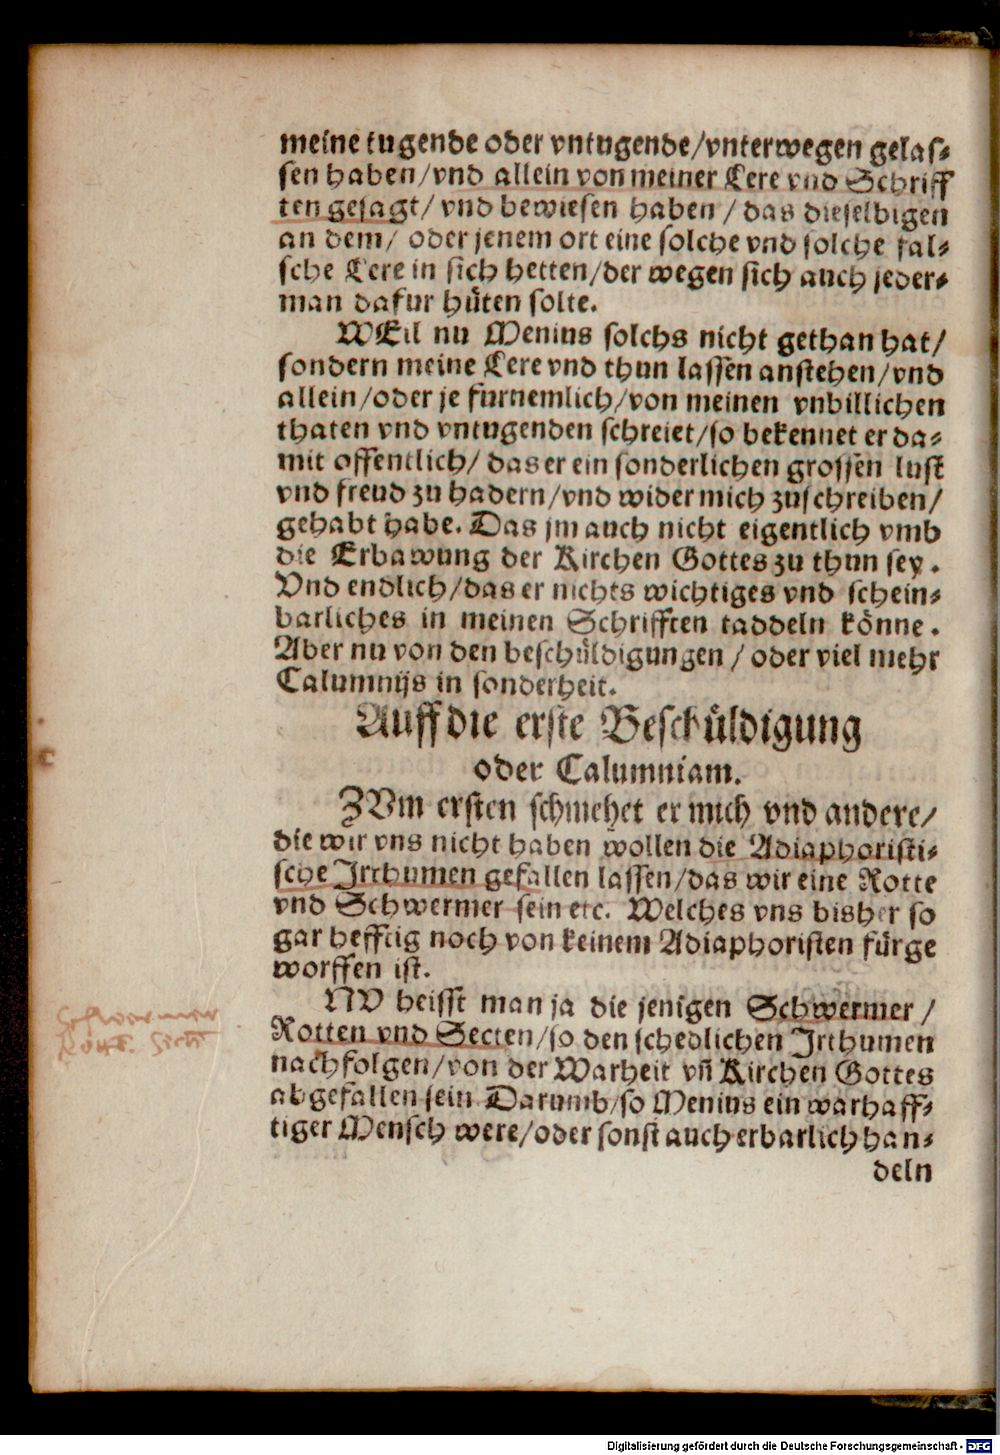 meine tugende oder vntugende/vnterwegen gelas-
sen haben/vnd allein von meiner Lere vnd Schriff
ten gesagt/ vnd bewiesen haben / das dieselbigen
an dem/ oder jenem ort eine solche vnd solche fal-
sche Lere in sich hetten/der wegen sich auch jeder-
man dafur hüten solte.
WEil nu Menius solchs nicht gethan hat/
sondern meine Lere vnd thun lassen anstehen/vnd
allein/oder je furnemlich/von meinen vnbillichen
thaten vnd vntugenden schreiet/so bekennet er da-
mit offentlich/ das er ein sonderlichen grossen lust
vnd freud zu hadern/vnd wider mich zuschreiben/
gehabt habe. Das jm auch nicht eigentlich vmb
die Erbawung der Kirchen Gottes zu thun sey.
Vnd endlich/das er nichts wichtiges vnd schein-
barliches in meinen Schrifften taddeln könne.
Aber nu von den beschüldigungen / oder viel mehr
Calumnijs in sonderheit.
Auff die erste Beschüldigung
oder Calumniam.
ZVm ersten schmehet er mich vnd andere/
die wir vns nicht haben wollen die Adiaphoristi-
sche Jrthumen gefallen lassen/das wir eine Rotte
vnd Schwermer sein etc. Welches vns bisher so
gar hefftig noch von keinem Adiaphoristen fürge
worffen ist.
NV heisst man ja die jenigen Schwermer /
Rotten vnd Secten/so den schedlichen Jrthumen
nachfolgen/von der Warheit vn̄ Kirchen Gottes
abgefallen sein Darumb/so Menius ein warhaff-
tiger Mensch were/oder sonst auch erbarlich han-
deln
Schwermer
Digitalisierung gefördert durch die Deutsche Forschungsgemeinschaft - DFG